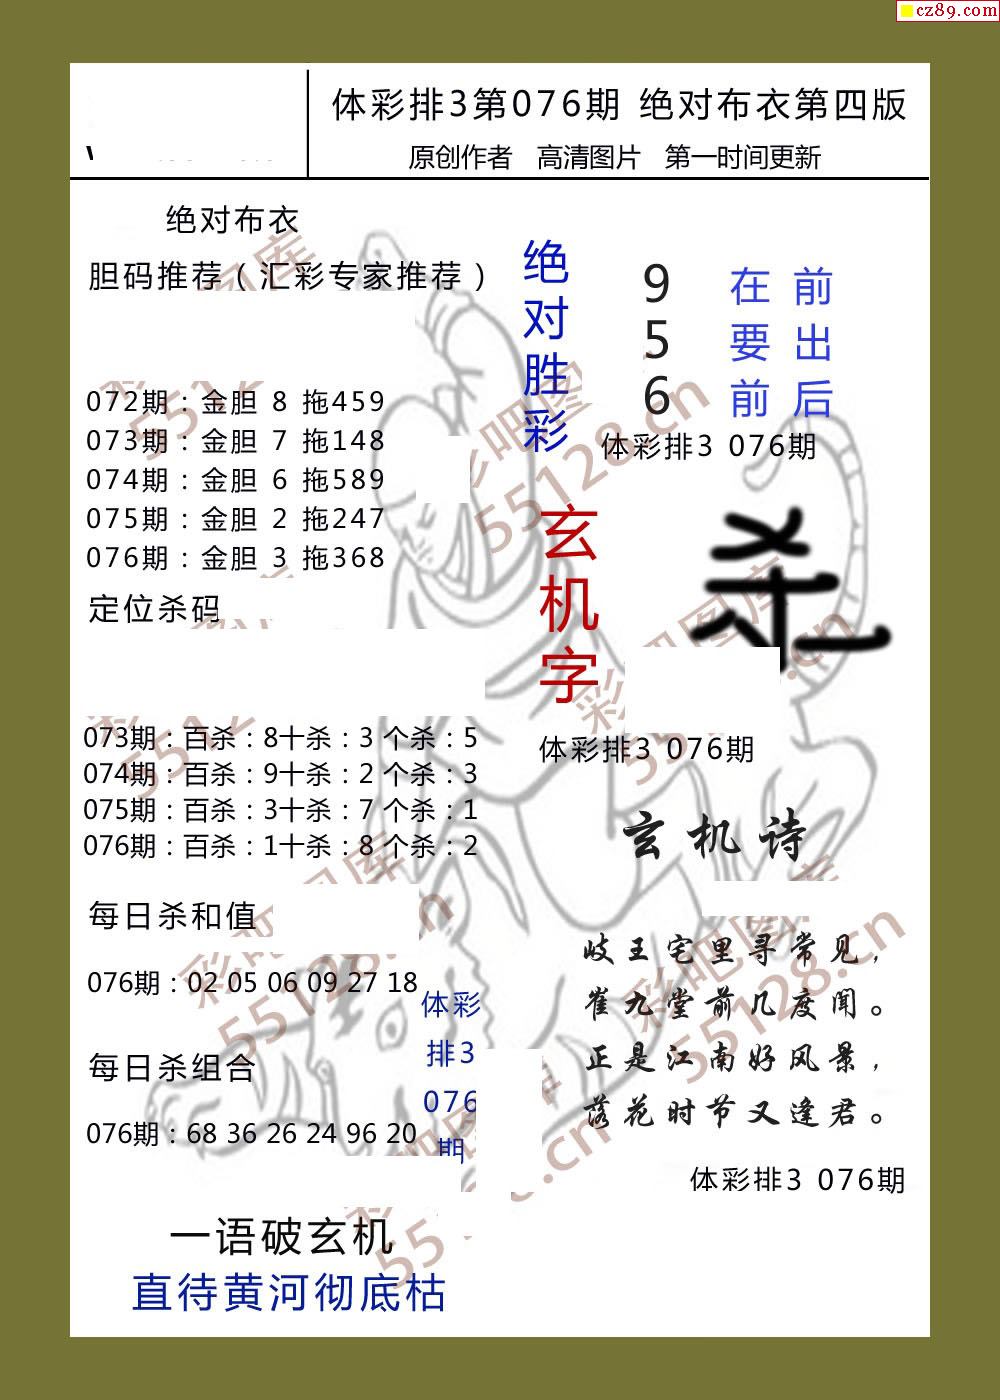 cz89.com
体彩排3第076期 绝对布衣第四版
原创作者 高清图片 第一时间更新
绝对布衣
胆码推荐(汇彩专家推荐)
072期:金胆 8 拖459
073期:金胆 7 拖148
074期:金胆 6 拖589
075期:金胆 2 拖247
076期:金胆 3 拖368
定位杀码
073期:百杀:8十杀:3 个杀:5
074期:百杀:9十杀:2 个杀:3
075期:百杀:3十杀:7 个杀:1
076期:百杀:1十杀:8 个杀:2
每日杀和值
076期:02 05 06 09 27 18
每日杀组合
076期:68 36 26 24 96 20
体彩
排3
076
期
一语破玄机
直待黄河彻底枯
绝对胜彩
9 在 前
5 要 出
6 前 后
体彩排3 076期
玄机字
杀
体彩排3 076期
玄机诗
岐王宅里寻常见,
崔九堂前几度闻。
正是江南好风景,
落花时节又逢君。
体彩排3 076期
彩吧图库
55128.cn